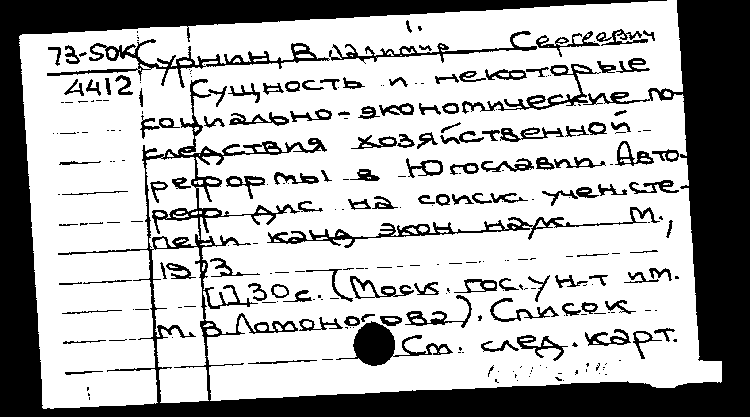 73-50К Сурнин, Владимир Сергеевич
4412 Сущность и некоторые
социально-экономические по-
следствия хозяйственной
реформы в Югославии. Авто-
реф. дис. на соиск. учен. сте-
пени канд. экон. наук. М.,
1973.
[1], 30 с. (Моск. гос. ун-т им.
М. В. Ломоносова). Список
См. след. карт.